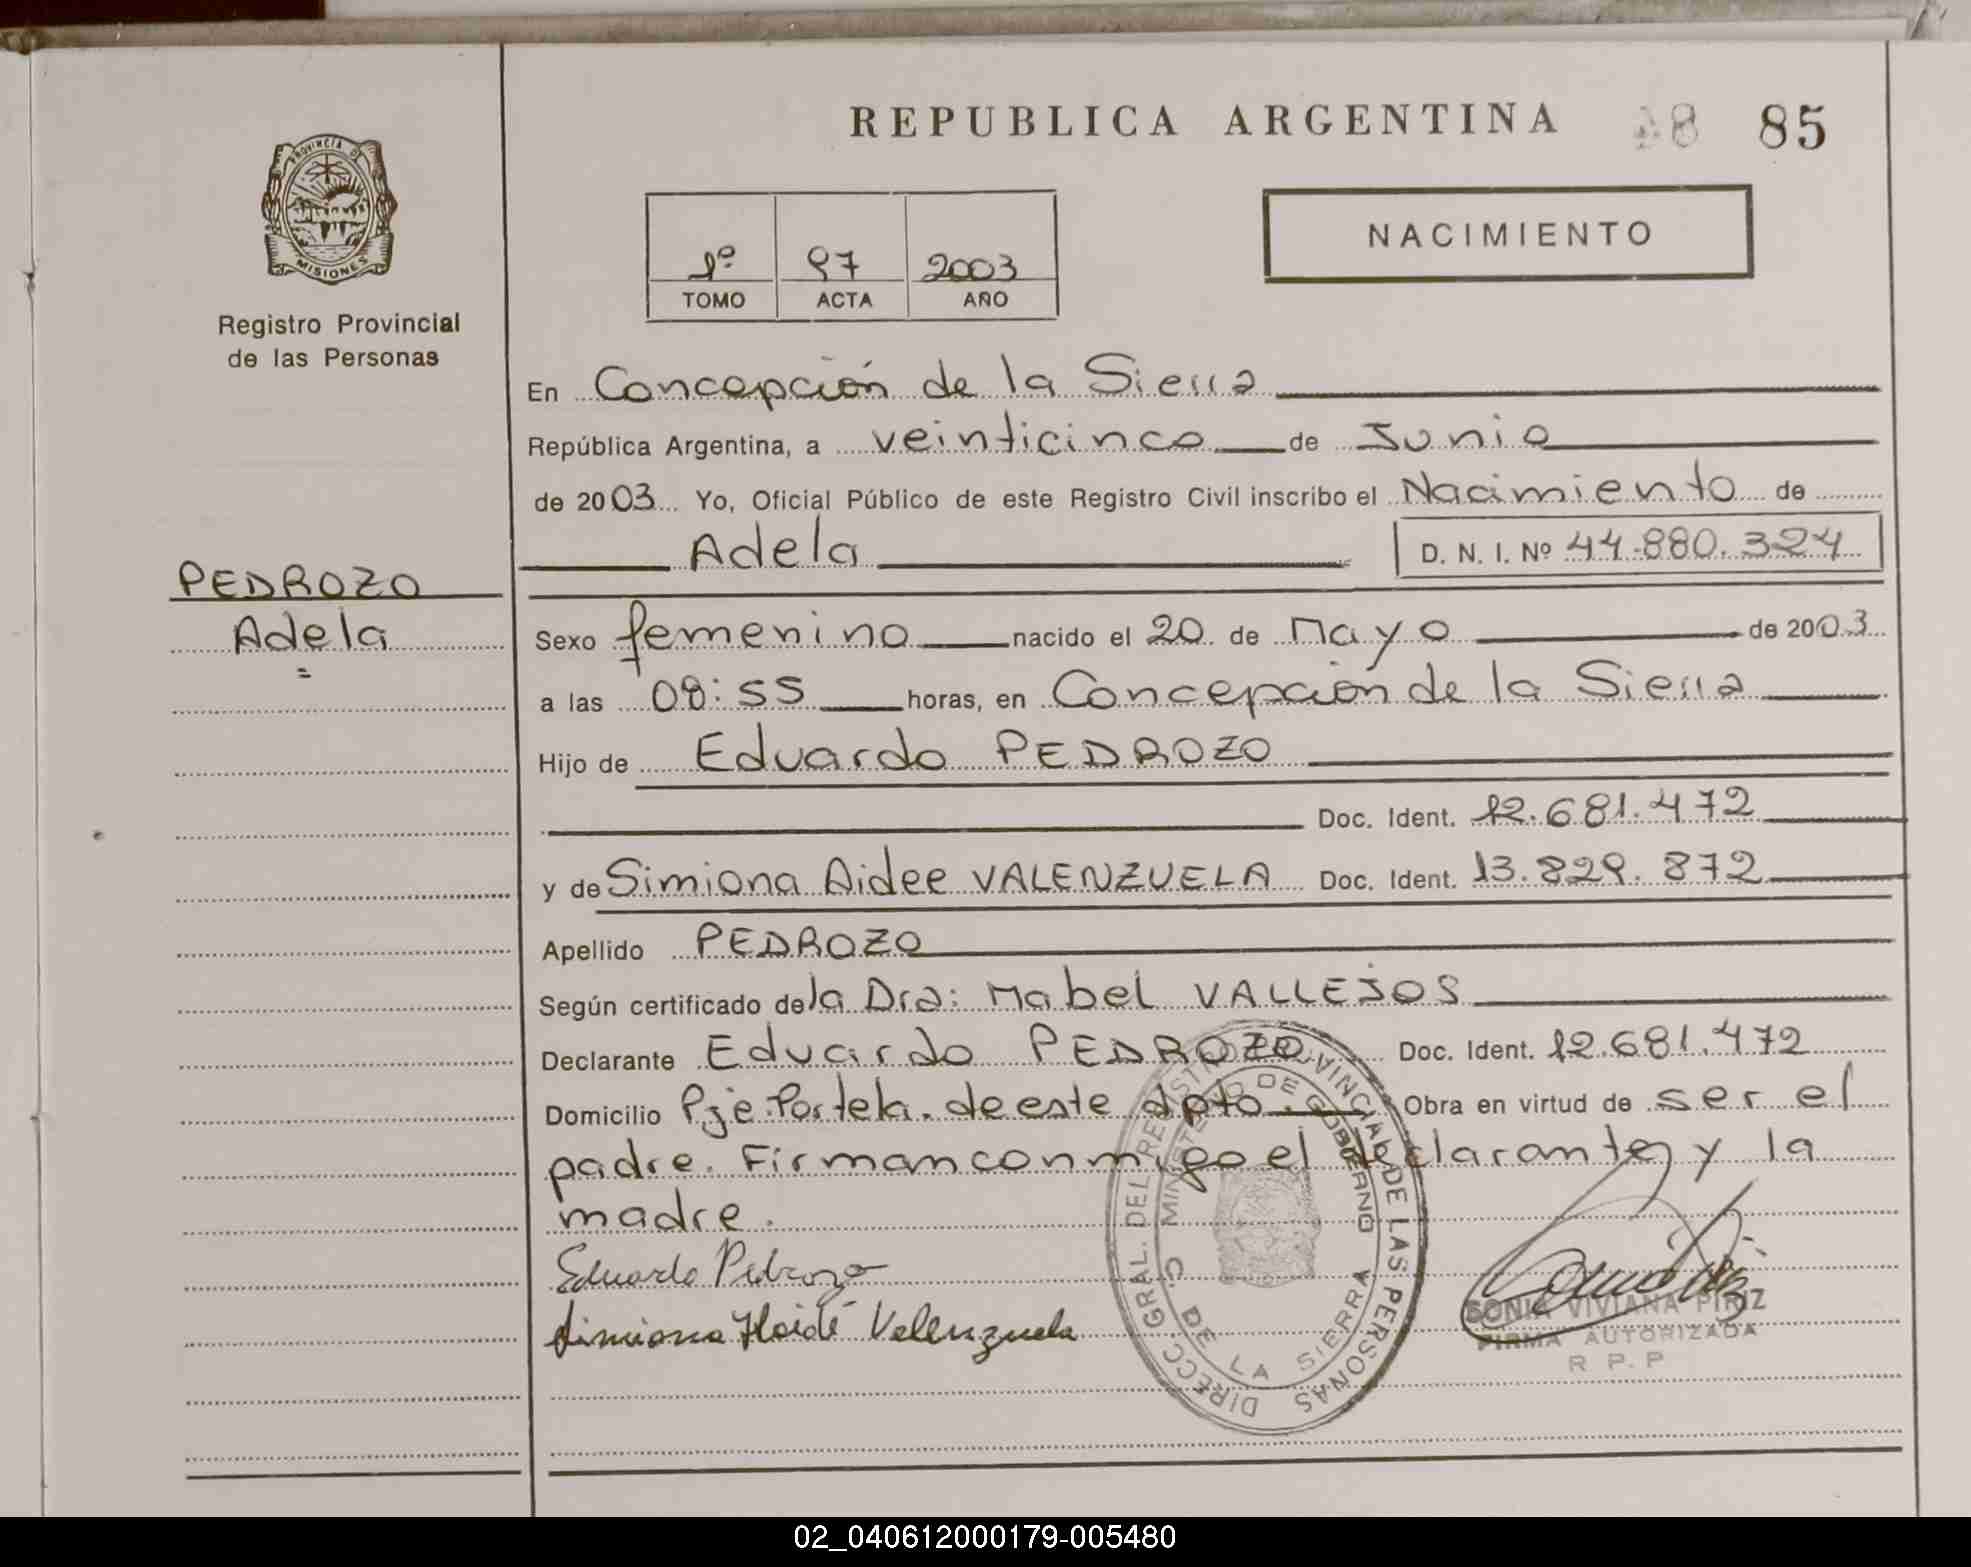 REPUBLICA ARGENTINA 85
PROVINCIA DE
MISIONES
Registro Provincial
de las Personas
1º 97 2003
TOMO ACTA AÑO
NACIMIENTO
En Concepción de la Sierra
República Argentina, a veinticinco de Junio
de 2003 Yo, Oficial Público de este Registro Civil inscribo el Nacimiento de
Adela D. N. I. Nº 44.880.324
PEDROZO
Adela
=
Sexo femenino nacido el 20 de Mayo de 2003
a las 08:55 horas, en Concepción de la Sierra
Hijo de Eduardo PEDROZO
Doc. Ident. 12.681.472
y de Simiona Aidee VALENZUELA Doc. Ident. 13.829.872
Apellido PEDROZO
Según certificado de la Dra: Mabel VALLEJOS
Declarante Eduardo PEDROZO Doc. Ident. 12.681.472
Domicilio Pje. Portela. de este dpto. Obra en virtud de ser el
padre. Firman conmigo el declarante y la
madre.
Eduardo Pedrozo
Simiona Haidé Valenzuela
DIRECC. GRAL. DEL REGISTRO PROVINCIAL DE LAS PERSONAS
MINISTERIO DE GOBIERNO
C. DE LA SIERRA
SONIA VIVIANA PIRIZ
FIRMA AUTORIZADA
R P. P
02_040612000179-005480